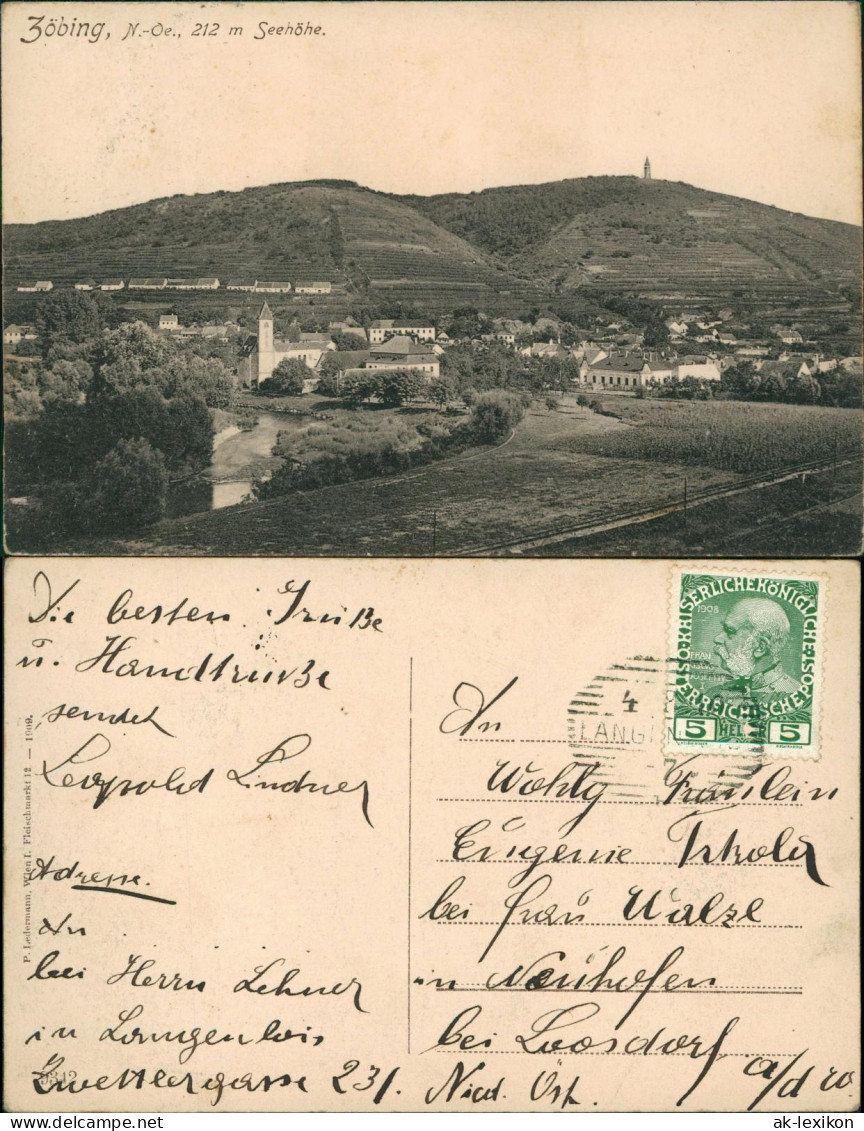 Zöbing, N.-Oe., 212 m Seehöhe.
Die besten Grüße
u. Handküße
sendet
Leopold Lindner
Adresse.
An
bei Herrn Lehner
in Langenlois,
Zwettlergasse 231.
9312
P. Ledermann, Wien I. Fleischmarkt 12 — 1909.
KAISERLICHEKÖNIGLICHE
ÖSTERREICHISCHEPOST
1908
5 HELLER 5
4
LANGEN
An
Wohlg Fräulein
Eugenie
bei Frau Walzl
in Neuhofen
bei Loosdorf a/d W.
Nied. Öst.
ak-lexikon